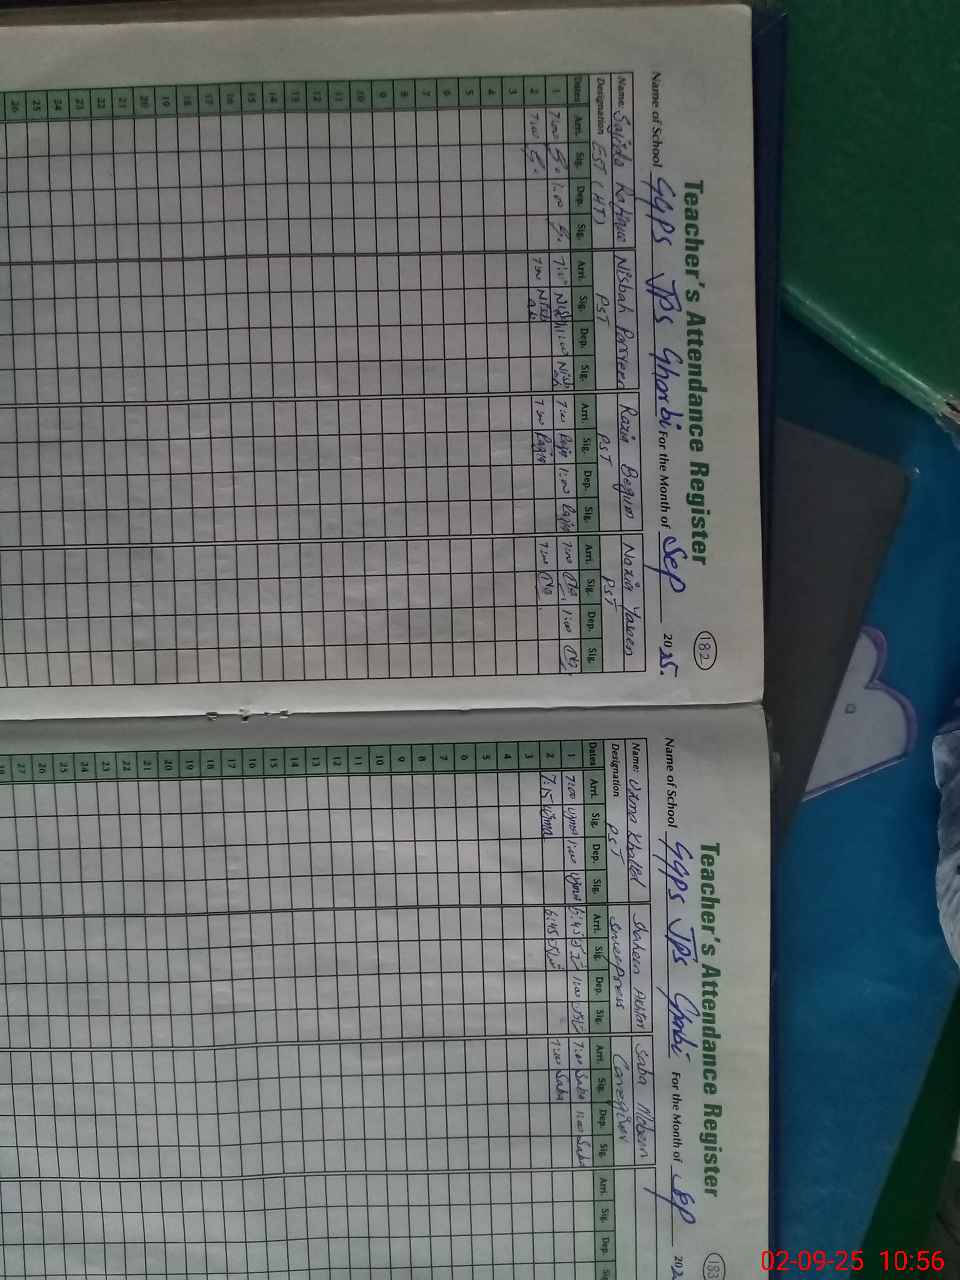 Teacher's Attendance Register
182
Name of School GGPS JPS Gharbi For the Month of Sep 2025.
Name: Sajida Rafique Nisbah Parveen Razia Begum Nazia Yaseen
Designation EST (HT) PST PST PST
Dates Arri. Sig. Dep. Sig. Arri. Sig. Dep. Sig. Arri. Sig. Dep. Sig. Arri. Sig. Dep. Sig.
1 7:00 1:00 7:00 1:00 7:00 Razia 1:00 Razia 7:00 1:00
2 7:00 7:00 7:00 Razia 7:00
3
4
5
6
7
8
9
10
11
12
13
14
15
16
17
18
19
20
21
22
23
24
25
26
Teacher's Attendance Register
183
Name of School GGPS JPS Gharbi For the Month of Sep 202
Name: Uzma Khalid Shaheen Akhtar Saba Mobeen
Designation PST Sweepress Caregiver
Dates Arri. Sig. Dep. Sig. Arri. Sig. Dep. Sig. Arri. Sig. Dep. Sig. Arri. Sig. Dep. Sig.
1 7:00 Uzma 1:00 Uzma 6:45 1:00 7:00 Saba 1:00 Saba
2 7:15 Uzma 6:45 7:00 Saba
3
4
5
6
7
8
9
10
11
12
13
14
15
16
17
18
19
20
21
22
23
24
25
26
27
28
02-09-25 10:56